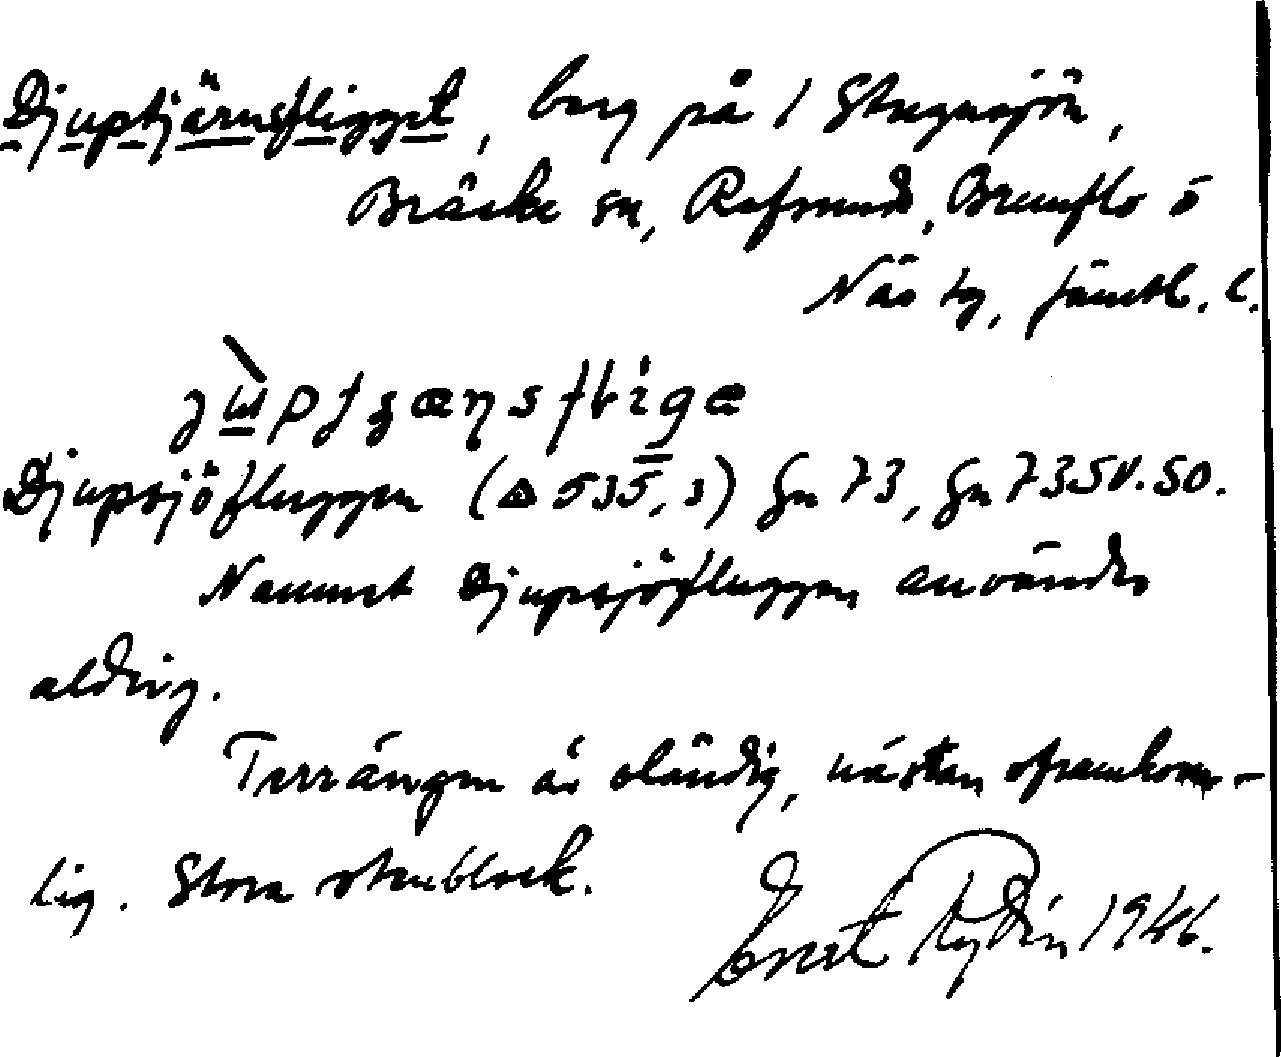 Djuptjärnsfligget, berg på 1 Stugusjön,
Bräcke sn, Refsunds, Brunflo o
Näs tg, Jämtl. l.
Djupsjöfluggen (△ 535,3) Gn 73, Gn 7350.50.
Namnet Djupsjöfluggen användes
aldrig.
Terrängen är oländig, nästan oframkom-
lig. Stora stenblock.
Ernst Rydén 1946.